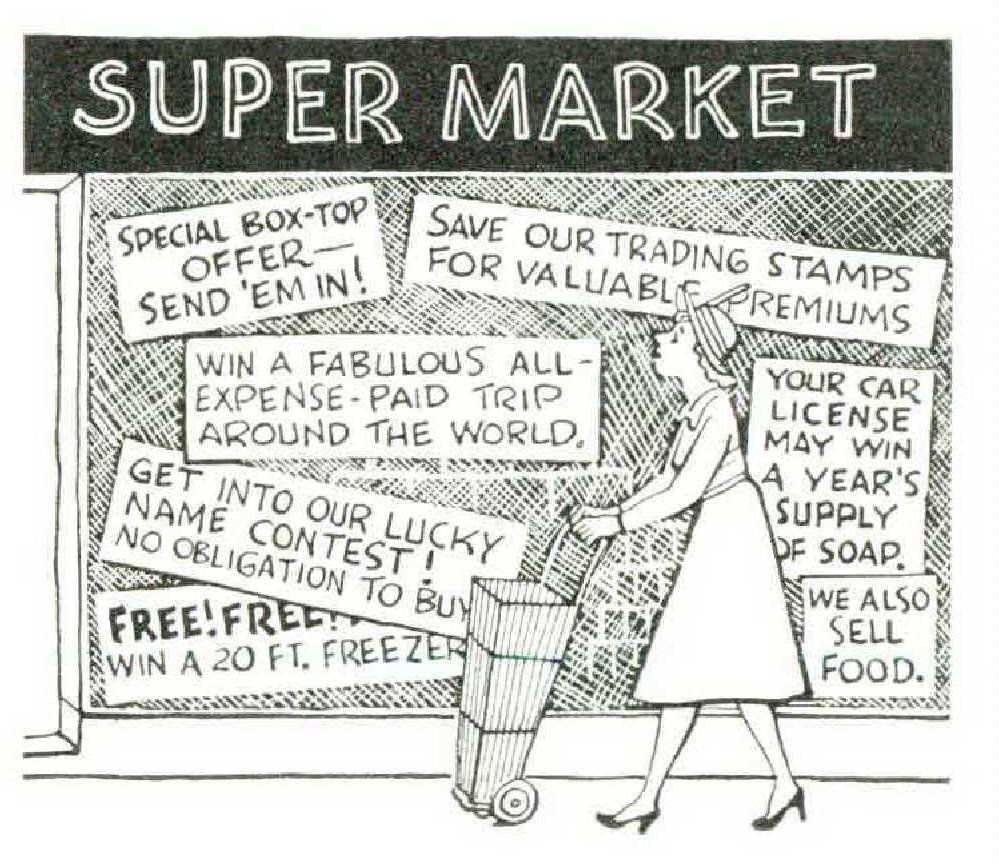 SUPER MARKET
SPECIAL BOX-TOP
OFFER—
SEND 'EM IN!
SAVE OUR TRADING STAMPS
FOR VALUABLE PREMIUMS
WIN A FABULOUS ALL-
EXPENSE-PAID TRIP
AROUND THE WORLD.
YOUR CAR
LICENSE
MAY WIN
A YEAR'S
SUPPLY
OF SOAP.
GET INTO OUR LUCKY
NAME CONTEST!
NO OBLIGATION TO BUY
FREE! FREE!
WIN A 20 FT. FREEZER
WE ALSO
SELL
FOOD.